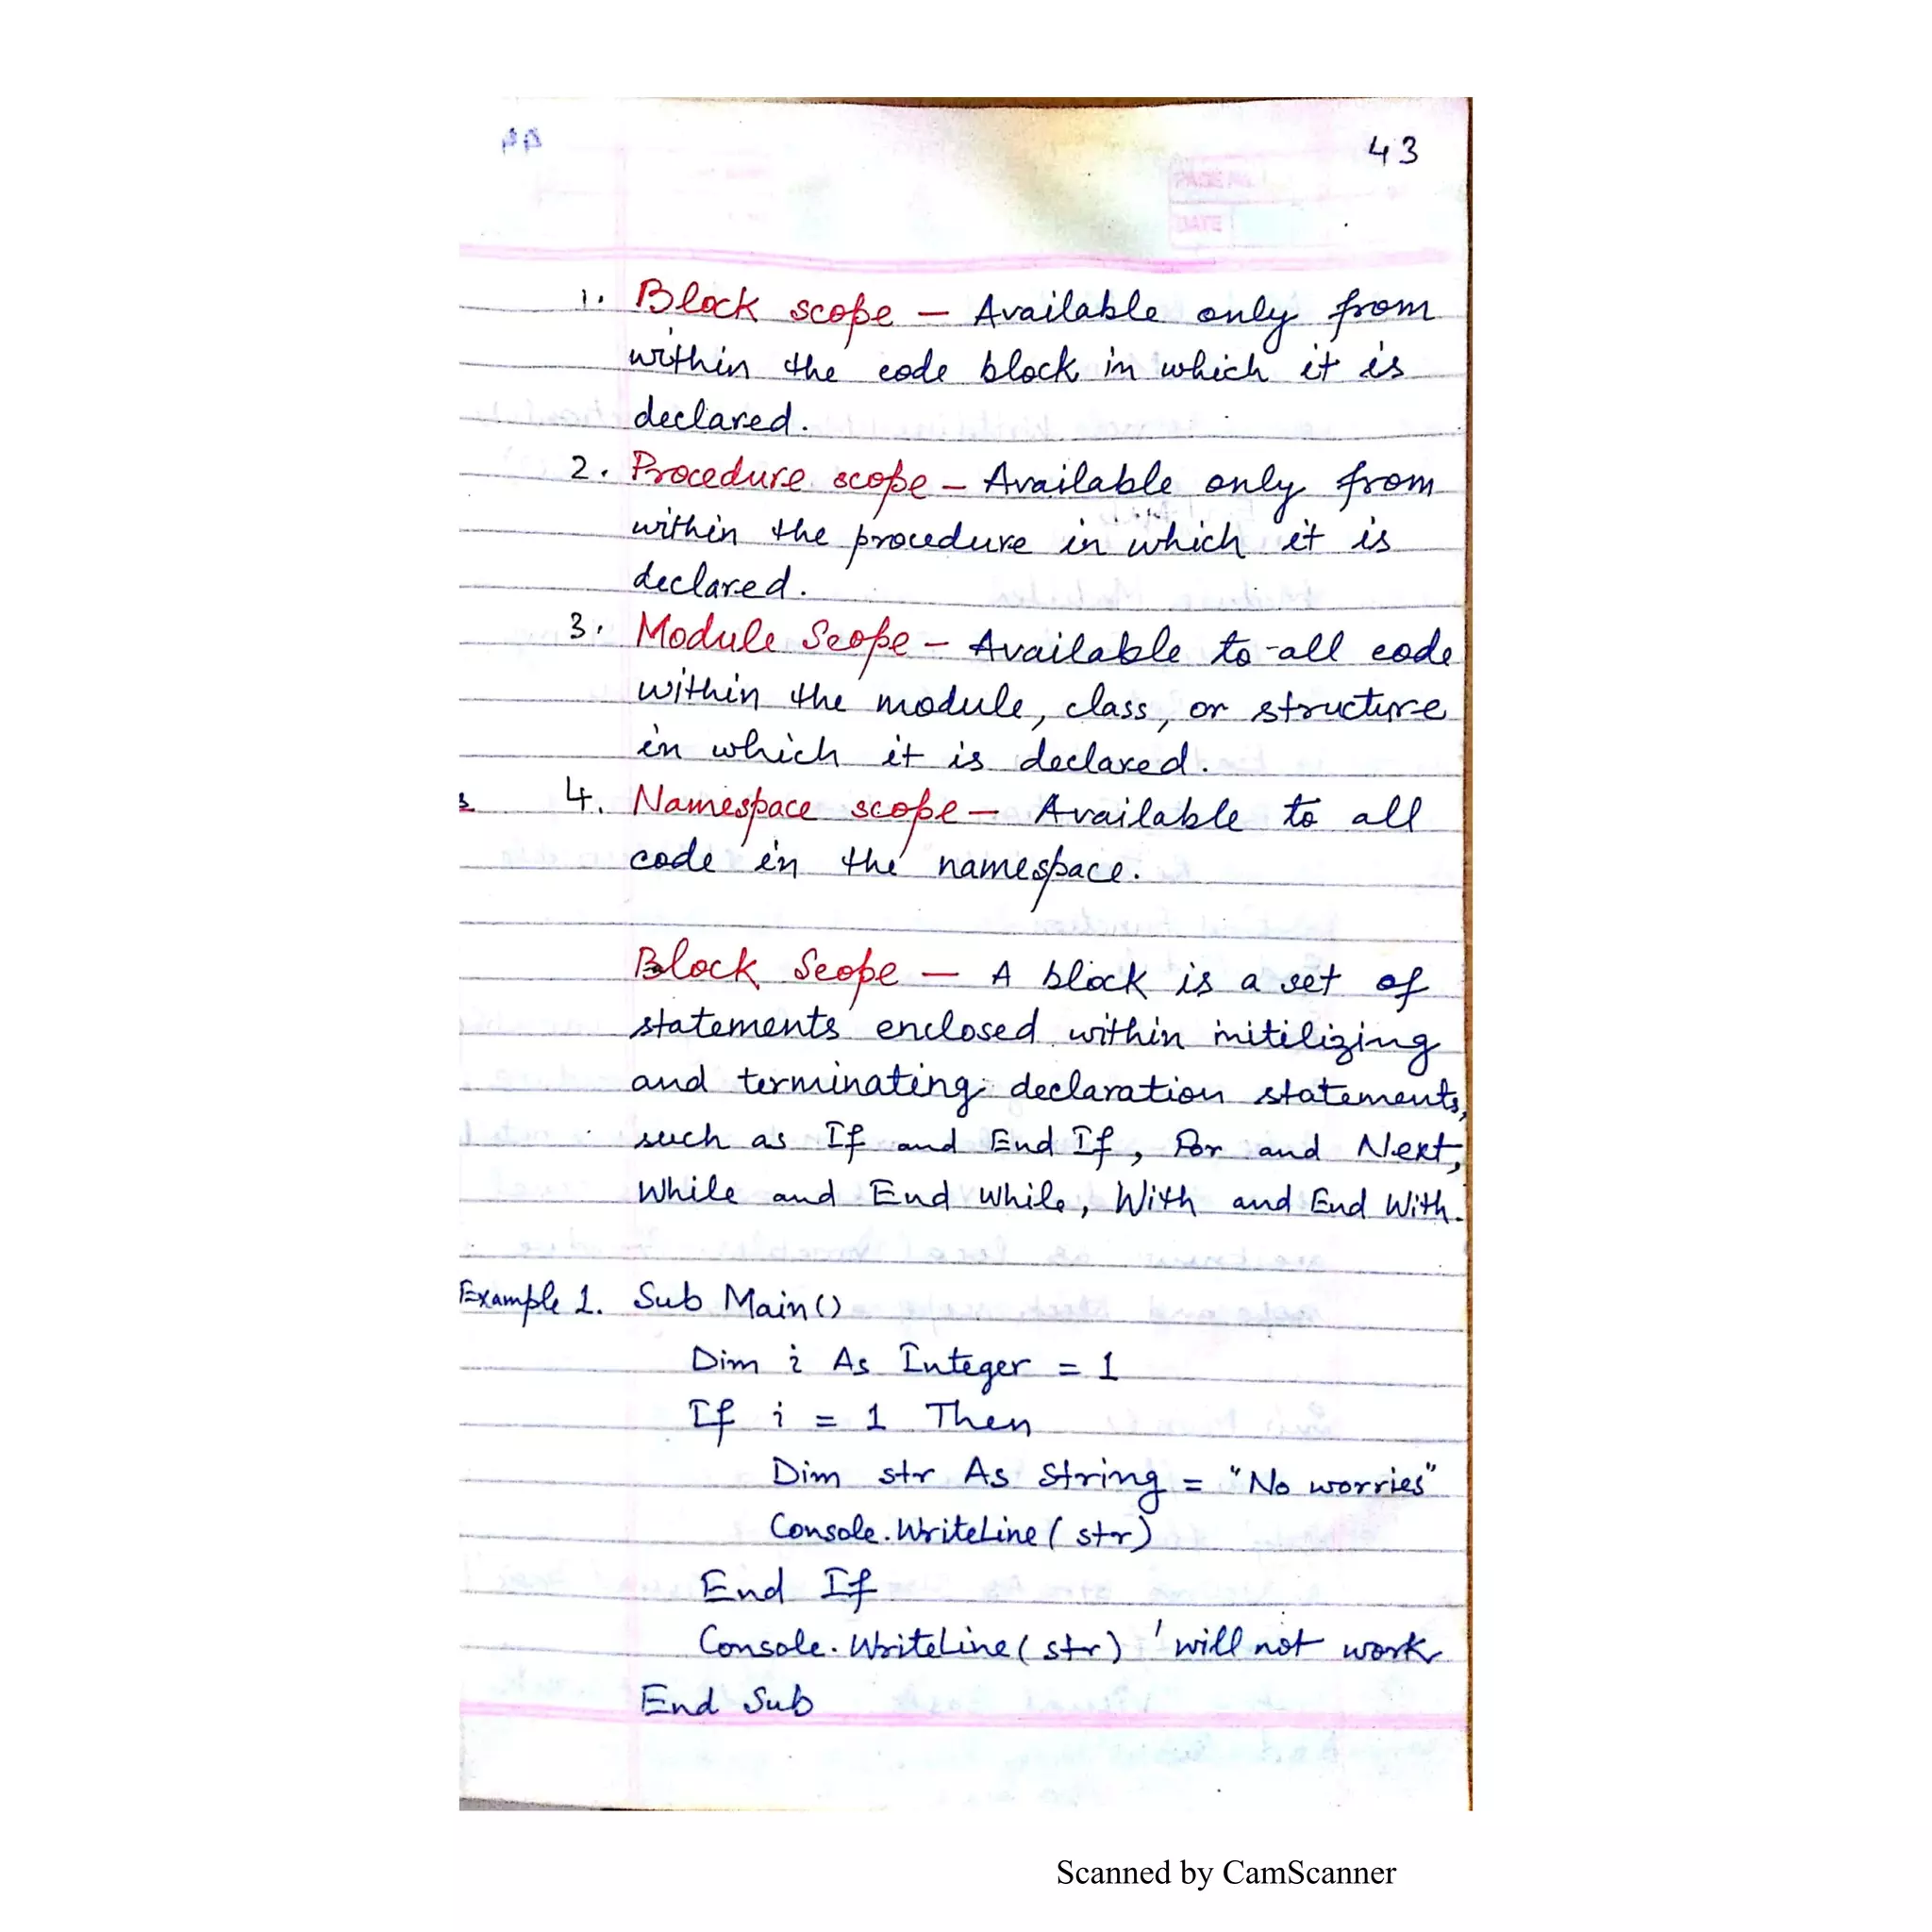 43
1. Block scope – Available only from
within the code block in which it is
declared.
2. Procedure scope – Available only from
within the procedure in which it is
declared.
3. Module Scope – Available to all code
within the module, class, or structure
in which it is declared.
4. Namespace scope – Available to all
code in the namespace.
Block Scope – A block is a set of
statements enclosed within initilizing
and terminating declaration statements,
such as If and End If, For and Next,
While and End while, With and End With.
Example 1. Sub Main()
Dim i As Integer = 1
If i = 1 Then
Dim str As String = "No worries"
Console.WriteLine(str)
End If
Console.WriteLine(str) 'will not work
End Sub
Scanned by CamScanner